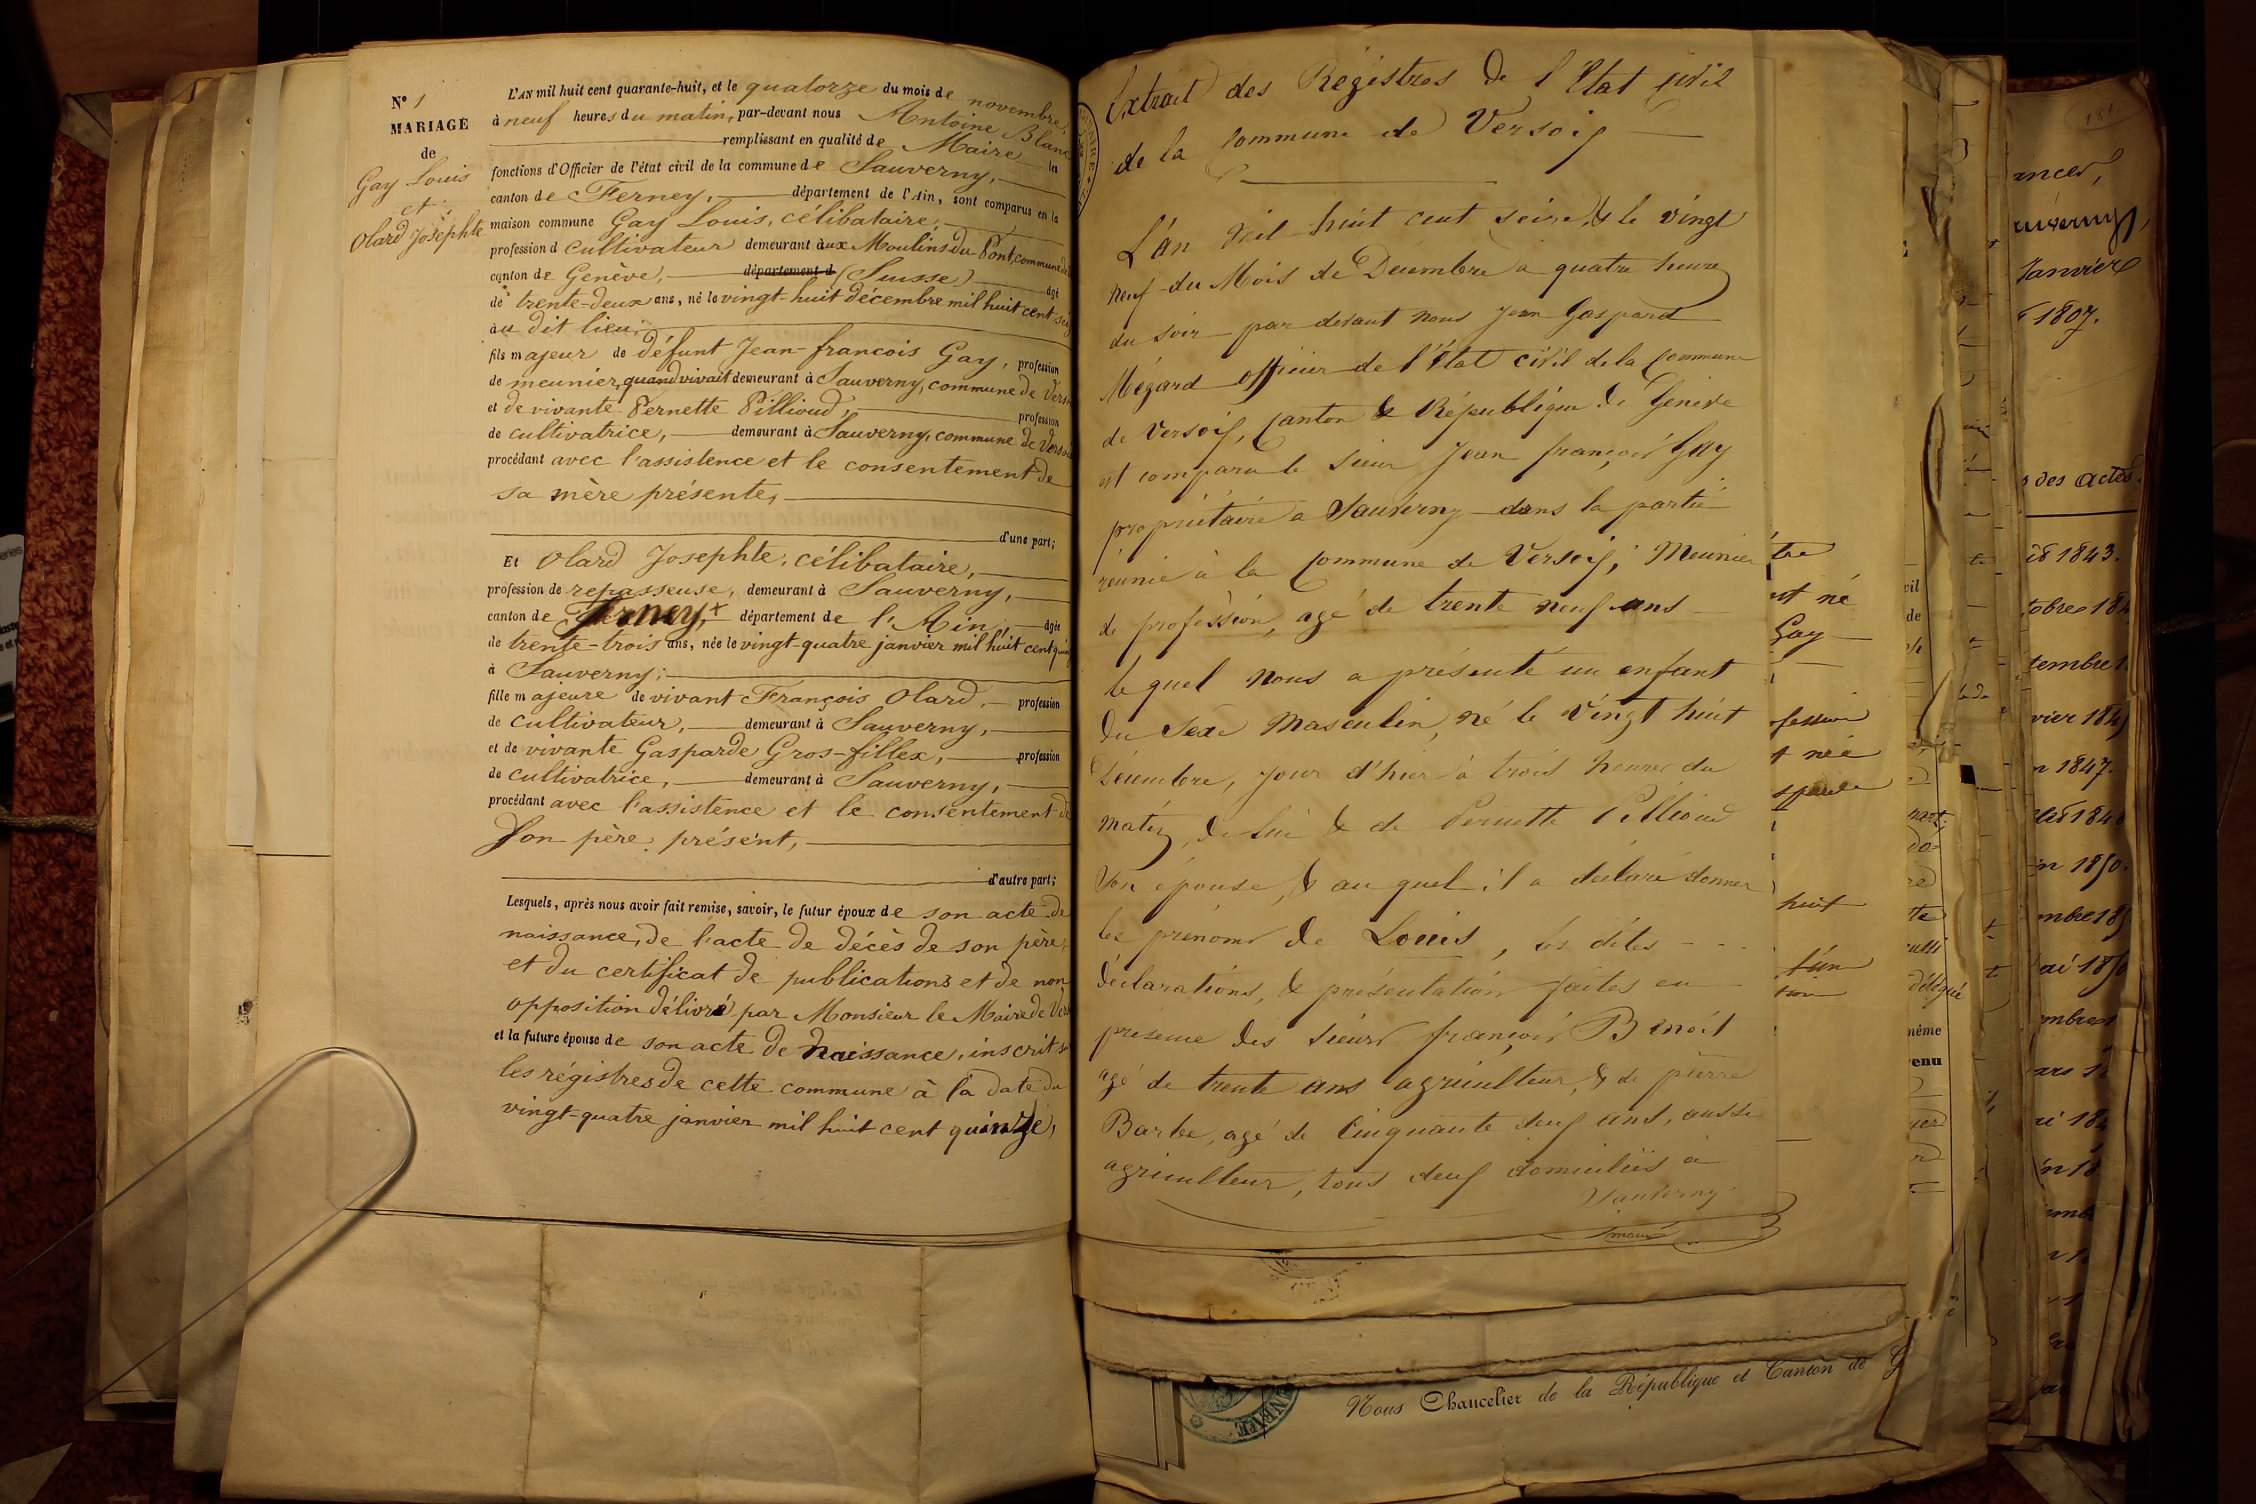 N° 1
MARIAGE
de
Gay Louis
et
Olard Josephte
L'AN mil huit cent quarante-huit, et le quatorze du mois de novembre,
à neuf heures du matin, par-devant nous Antoine Blanc
remplissant en qualité de Maire les
fonctions d'Officier de l'état civil de la commune de Sauverny,
canton de Ferney, département de l'Ain, sont comparus en la
maison commune Gay Louis, célibataire,
profession d cultivateur demeurant aux Moulins du Pont, commune de
canton de Genève, département d (Suisse) âgé
de trente-deux ans, né le vingt-huit décembre mil huit cent seize
au dit lieu,
fils majeur de défunt Jean-francois Gay, profession
de meunier, quand vivait demeurant à Sauverny, commune de Verso
et de vivante Pernette Pillioud, profession
de cultivatrice, demeurant à Sauverny, commune de Versoi
procédant avec l'assistence et le consentement de
sa mère présente,
d'une part;
Et Olard Josephte, célibataire,
profession de repasseuse, demeurant à Sauverny,
canton de Ferney, département de l'Ain, âgée
de trente-trois ans, née le vingt-quatre janvier mil huit cent quin
à Sauverny;
fille majeure de vivant François Olard, profession
de cultivateur, demeurant à Sauverny,
et de vivante Gasparde Gros-fillex, profession
de cultivatrice, demeurant à Sauverny,
procédant avec l'assistence et le consentement de
son père présent,
d'autre part;
Lesquels, après nous avoir fait remise, savoir, le futur époux de son acte de
naissance, de l'acte de décès de son père,
et du certificat de publications et de non
opposition délivré par Monsieur le Maire de Vers
et la future épouse de son acte de naissance, inscrit s
les régistres de cette commune à la date du
vingt-quatre janvier mil huit cent quinze,
Extrait des Régistres de l'Etat civil
de la Commune de Versoix
L'an Mil huit cent seize, & le vingt
neuf du Mois de Décembre à quatre heures
du soir par devant nous Jean Gaspard
Mégard officier de l'État civil de la Commune
de Versoix, Canton & République de Genève
est comparu le sieur Jean françois Gay
propriétaire a Sauverny dans la partie
réunie à la Commune de Versoix, Meunier
de profession, agé de trente neuf ans
lequel nous a présenté un enfant
du Sexe Masculin, né le vingt huit
Décembre, jour d'hier à trois heures du
matin, de lui & de Pernette Pillioud
son épouse, & au quel il a déclaré donner
les prénoms de Louis, les dites
déclarations, & présentation faites en
présence des sieurs françois Benoit
agé de trente ans agriculteur, & de pierre
Barbe, agé de Cinquante deux ans, aussi
agriculteur, tous deux domiciliés à
Sauverny
Nous Chancelier de la République et Canton de G
tre
est né
Gay
fession
t née
huit
l'un
tion
vil
de
délégué
même
enu
181
ances,
auverny,
Janvier
1807.
s des actes
is 1843.
tobre 184
tembre 1
vier 184
n 1847.
n 1850.
mbre 185
ai 185